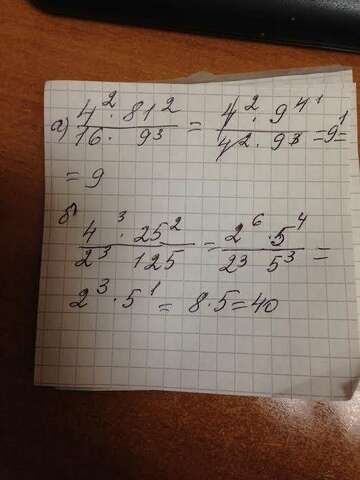 а) 4² · 81² / 16 · 9³ = 4² · 9⁴ ¹ / 4² · 9³ = 9¹ =
= 9
б) 4³ · 25² / 2³ 125 = 2⁶ · 5⁴ / 2³ 5³ =
2³ · 5¹ = 8 · 5 = 40